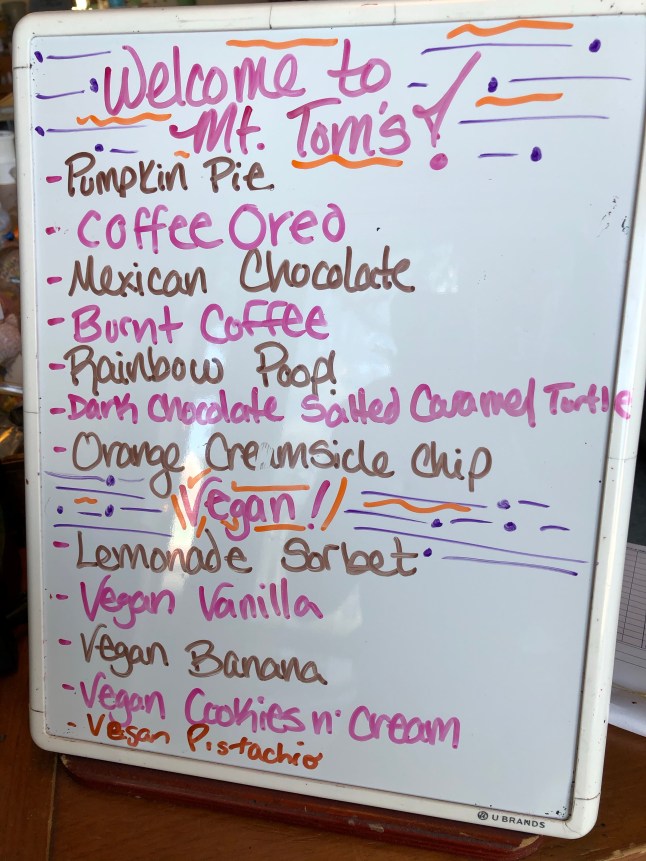 Welcome to
Mt. Tom's!
- Pumpkin Pie
- Coffee Oreo
- Mexican Chocolate
- Burnt Coffee
- Rainbow Poop!
- Dark Chocolate Salted Caramel Turtle
- Orange Creamsicle Chip
Vegan!
- Lemonade Sorbet
- Vegan Vanilla
- Vegan Banana
- Vegan Cookies n' Cream
- Vegan Pistachio
U BRANDS